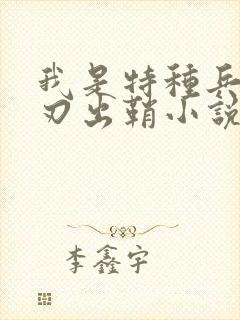 我是特種兵
刃出鞘小說
李鑫宇